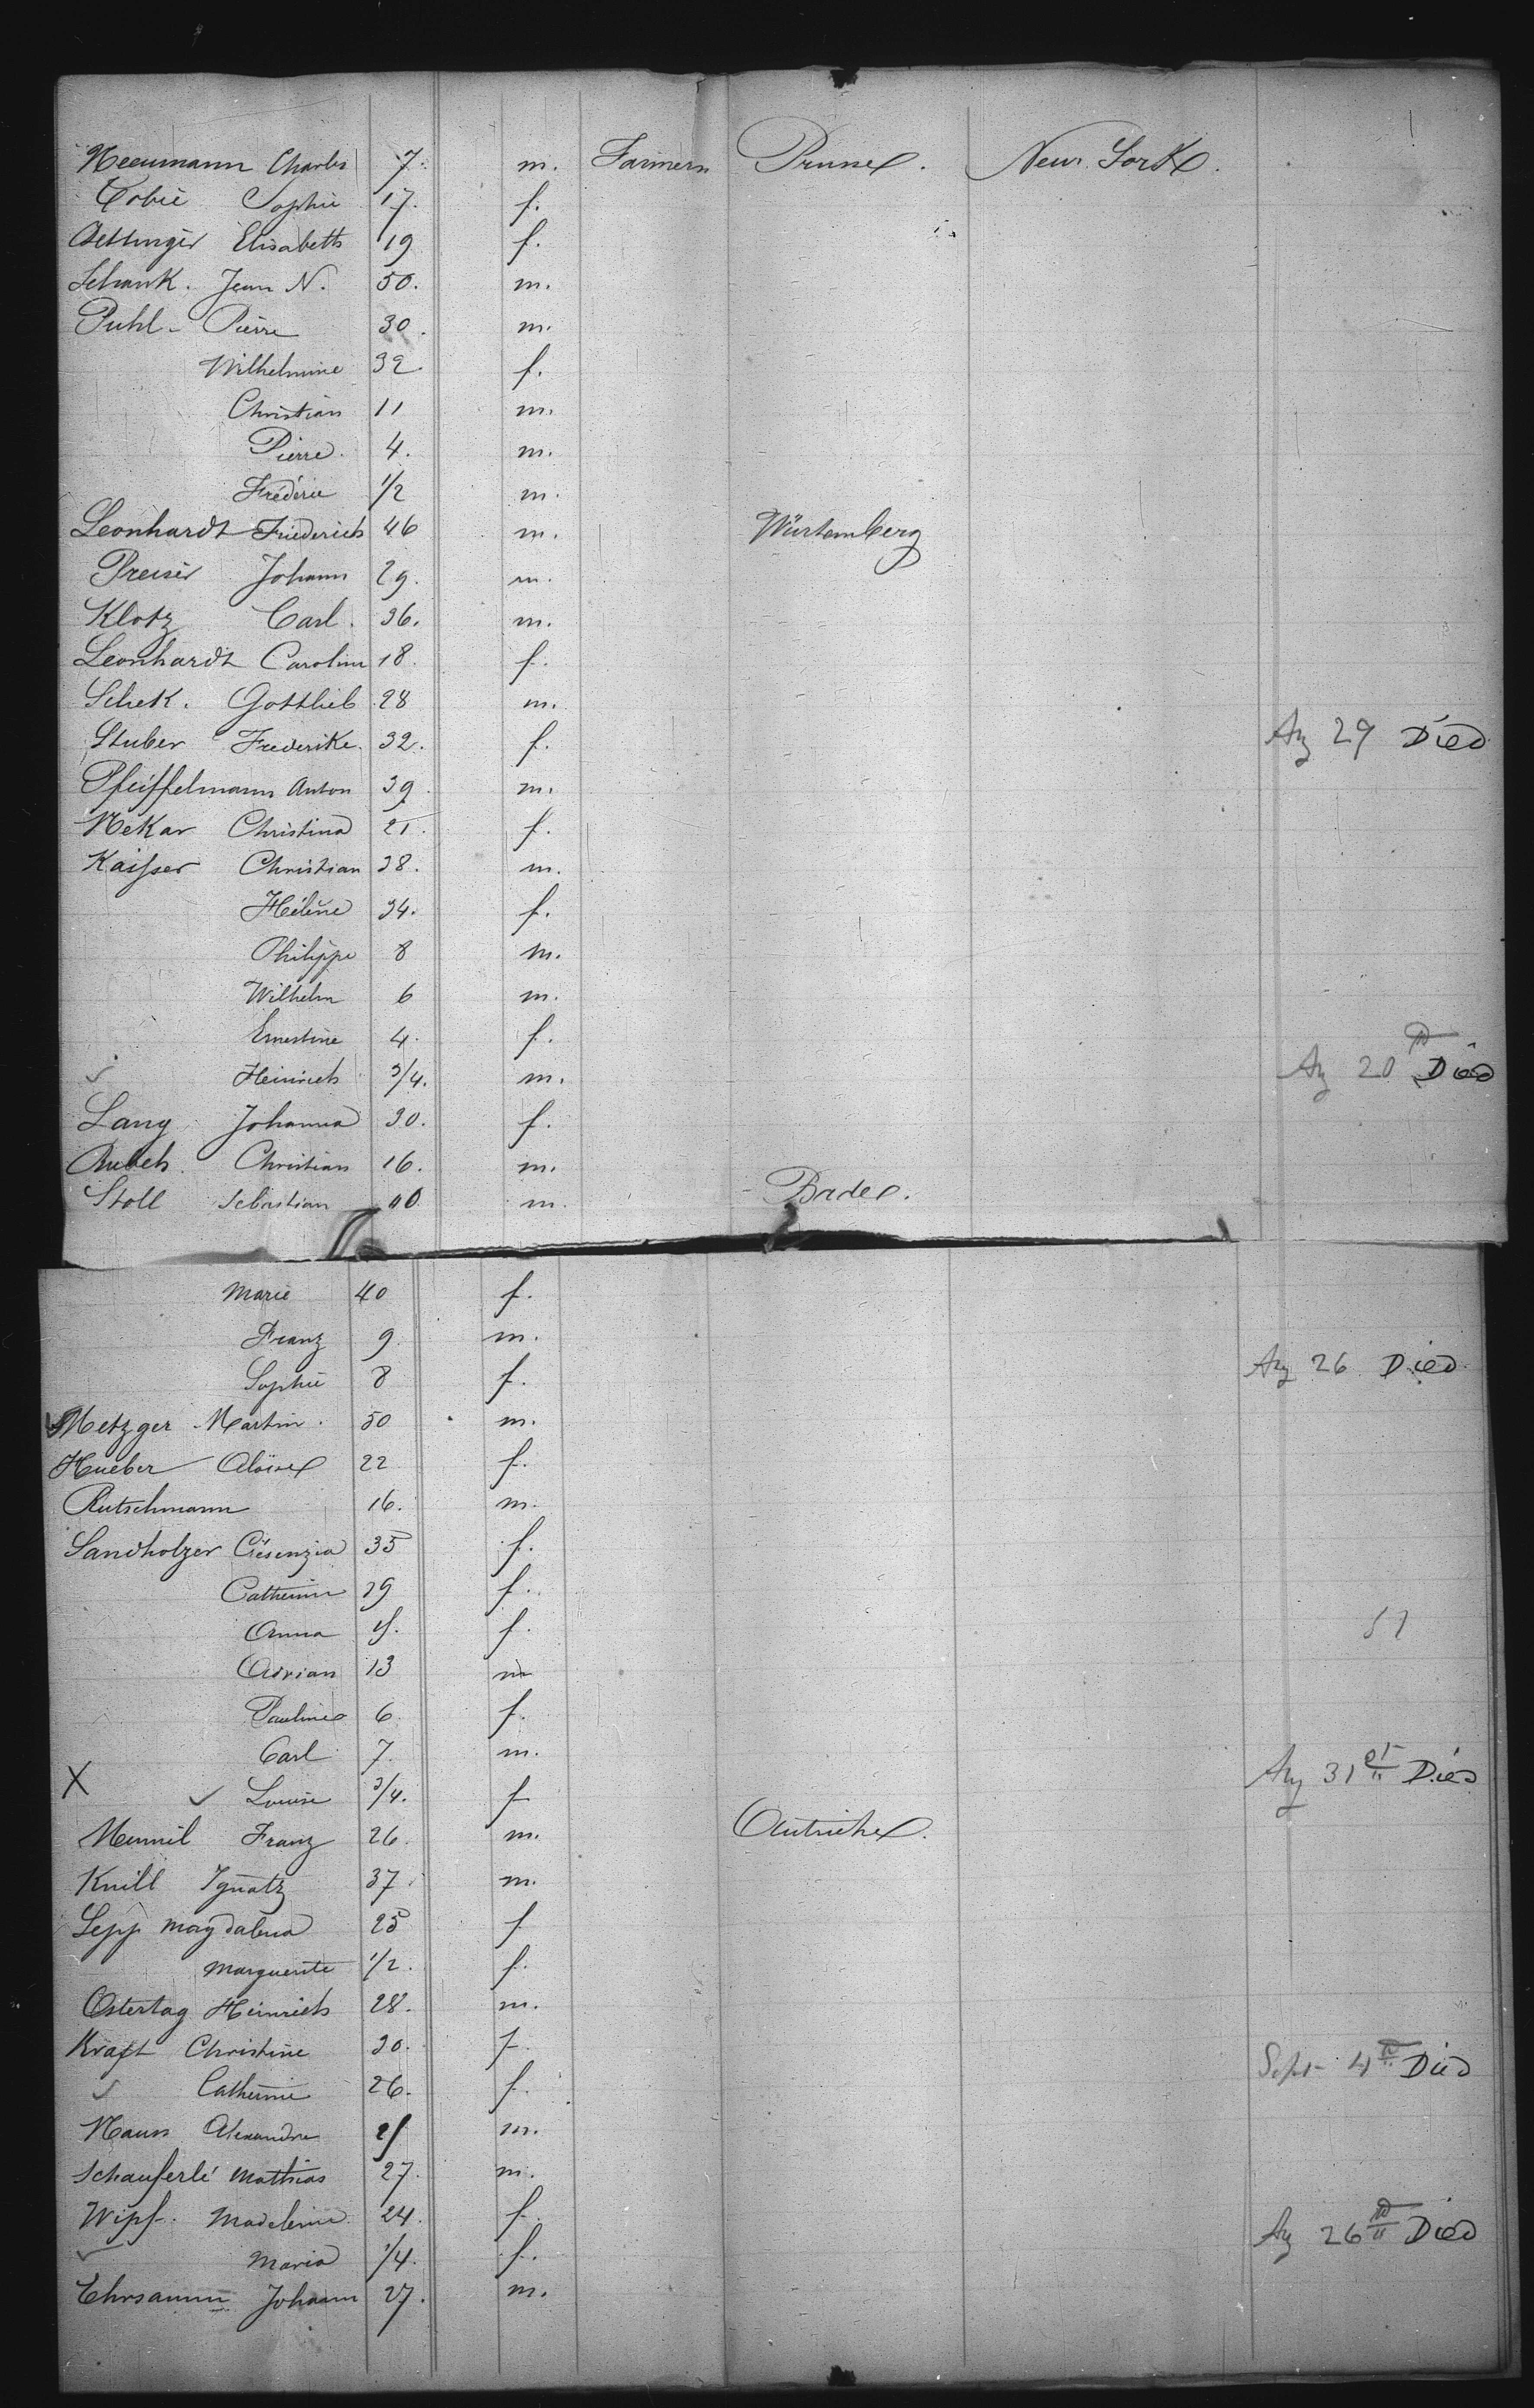 Neeumann Charles 7. m. Farmers Prusse. New York.
Tobie Sophie 17. f.
Oettinger Elisabeth 19 f.
Schank. Jean N. 50. m.
Puhl - Pierre 30. m.
Wilhelmine 32. f.
Christian 11 m.
Pierre. 4. m.
Fréderic 1/2 m.
Leonhardt Friederich 46 m. Würtemberg
Preiser Johann 29. m.
Klotz Carl. 36. m.
Leonhardt Carolin 18. f.
Schek. Gottlieb 28 m.
Stuber Frederike. 32. f. Ag 29 Died
Pfeiffelmann Anton 39. m.
Nekar Christina 21. f.
Kaisser Christian 38. m.
Hélène 34. f.
Philippe 8 m.
Wilhelm 6 m.
Ernestine 4. f.
Heinrich 3/4. m. Ag 20 Died
Lang Johanna 30. f.
Christian 16. m.
Stoll Sebastian 40. m. Bade.
Marie 40 f.
Franz 9. m.
Sophie 8 f. Ag 26 Died
Metzger Martin. 50 m.
Hueber Aloise 22 f.
Rutschmann 16. m.
Sandholzer Crésenzia 35 f.
Catherine 39 f.
Anna f.
Adrian 13 m
Pauline 6. f.
Carl 7. m.
X Louise 3/4. f Ag 31st Died
Franz 26. m. Autriche.
Knill Ignatz 37. m.
Sepp Magdalena 25 f
Marguerite 1/2. f.
Ostertag Heinrich 28. m.
Kraft Christine 30. f.
Catherine 26. f. Sept 4th Died
Alexandre m.
Schauferlé Mathias 27. m.
Wipf. Madeleine 24. f.
Maria 1/4. f. Ag 26th Died
Ehrsamm Johann 27. m.